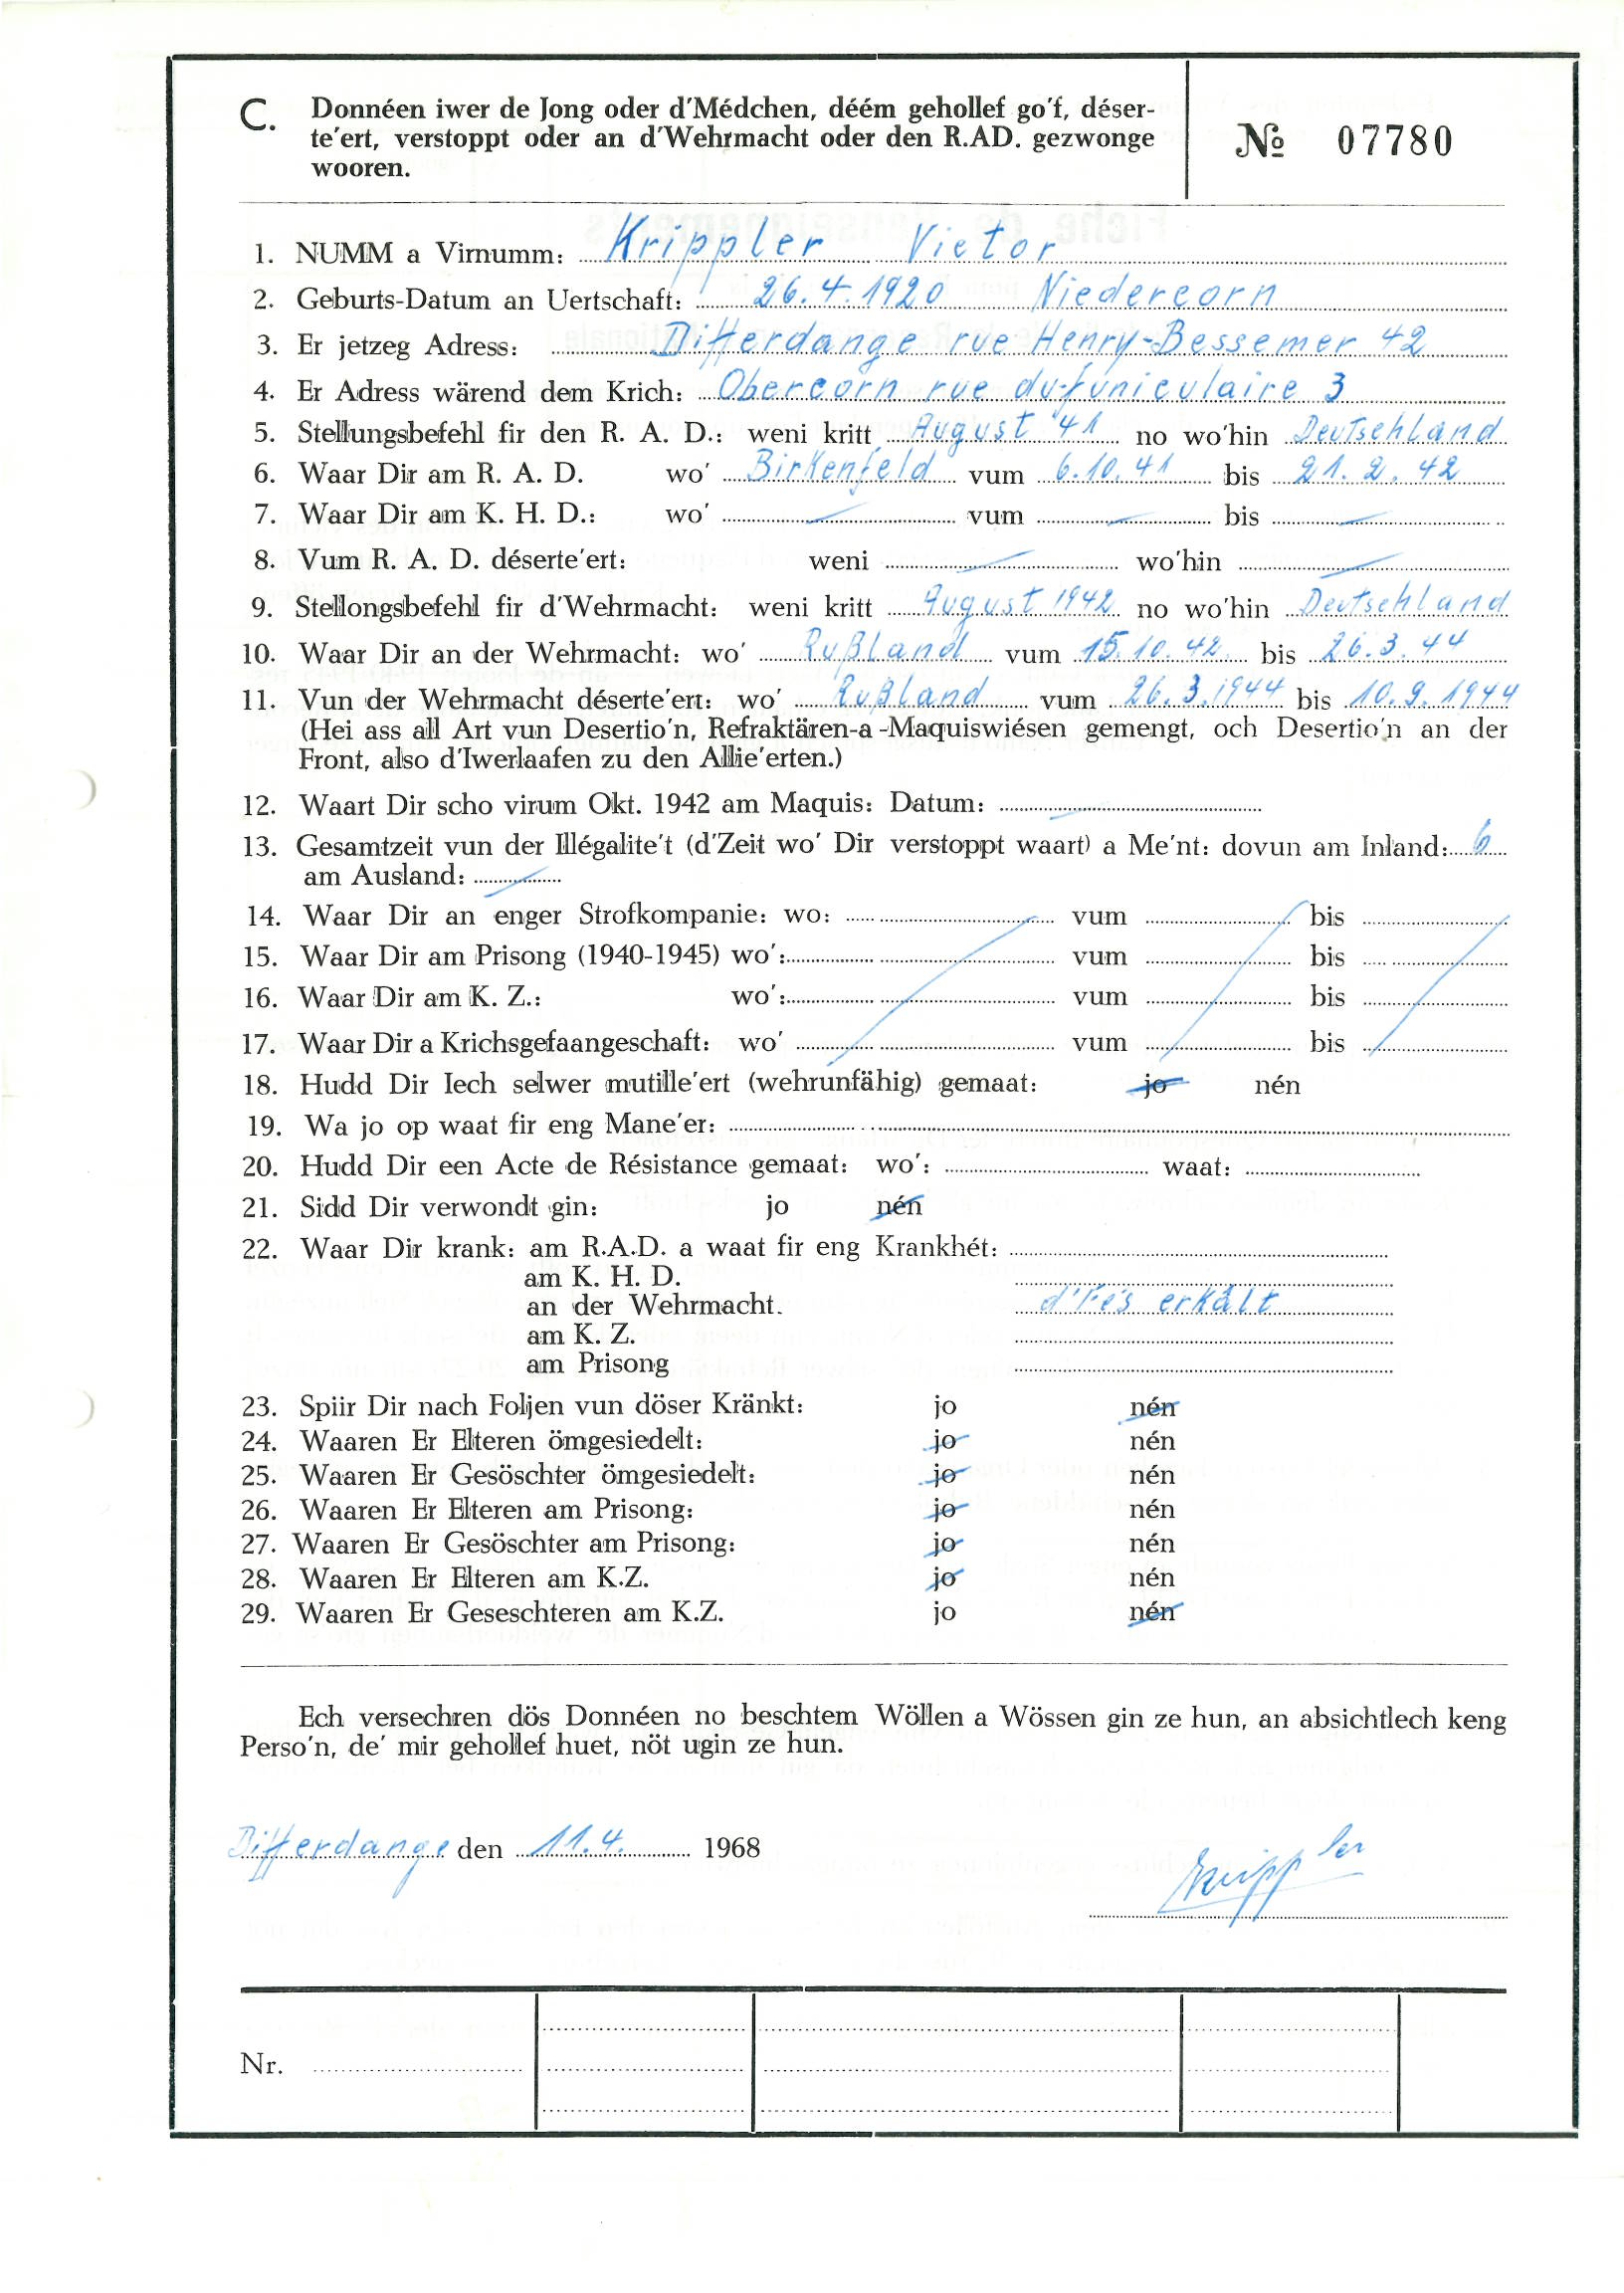 C. Donnéen iwer de Jong oder d'Médchen, déém gehollef go'f, déser-
te'ert, verstoppt oder an d'Wehrmacht oder den R.AD. gezwonge
wooren.
№ 07780
1. NUMM a Virnumm: Krippler Victor
2. Geburts-Datum an Uertschaft: 26.4.1920 Niedercorn
3. Er jetzeg Adress: Differdange rue Henry-Bessemer 42
4. Er Adress wärend dem Krich: Obercorn rue du funiculaire 3
5. Stellungsbefehl fir den R. A. D.: weni kritt August 41 no wo'hin Deutschland
6. Waar Dir am R. A. D. wo' Birkenfeld vum 6.10.41 bis 21.2.42
7. Waar Dir am K. H. D.: wo' — vum — bis —
8. Vum R. A. D. déserte'ert: weni — wo'hin —
9. Stellongsbefehl fir d'Wehrmacht: weni kritt August 1942 no wo'hin Deutschland
10. Waar Dir an der Wehrmacht: wo' Rußland vum 15.10.42 bis 26.3.44
11. Vun der Wehrmacht déserte'ert: wo' Rußland vum 26.3.1944 bis 10.9.1944
(Hei ass all Art vun Desertio'n, Refraktären-a-Maquiswiésen gemengt, och Desertio'n an der
Front, also d'Iwerlaafen zu den Allie'erten.)
12. Waart Dir scho virum Okt. 1942 am Maquis: Datum: —
13. Gesamtzeit vun der Illégalite't (d'Zeit wo' Dir verstoppt waart) a Me'nt: dovun am Inland: 6
am Ausland: —
14. Waar Dir an enger Strofkompanie: wo: vum bis
15. Waar Dir am Prisong (1940-1945) wo': vum bis
16. Waar Dir am K. Z.: wo': vum bis
17. Waar Dir a Krichsgefaangeschaft: wo' vum bis
18. Hudd Dir Iech selwer mutille'ert (wehrunfähig) gemaat: jo nén
19. Wa jo op waat fir eng Mane'er:
20. Hudd Dir een Acte de Résistance gemaat: wo': waat:
21. Sidd Dir verwondt gin: jo nén
22. Waar Dir krank: am R.A.D. a waat fir eng Krankhét:
am K. H. D.
an der Wehrmacht. d'Fe's erkält
am K. Z.
am Prisong
23. Spiir Dir nach Foljen vun döser Kränkt: jo nén
24. Waaren Er Elteren ömgesiedelt: jo nén
25. Waaren Er Gesöschter ömgesiedelt: jo nén
26. Waaren Er Elteren am Prisong: jo nén
27. Waaren Er Gesöschter am Prisong: jo nén
28. Waaren Er Elteren am K.Z. jo nén
29. Waaren Er Geseschteren am K.Z. jo nén
Ech versechren dös Donnéen no beschtem Wöllen a Wössen gin ze hun, an absichtlech keng
Perso'n, de' mir gehollef huet, nöt ugin ze hun.
Differdange den 11.4. 1968
Krippler
Nr.